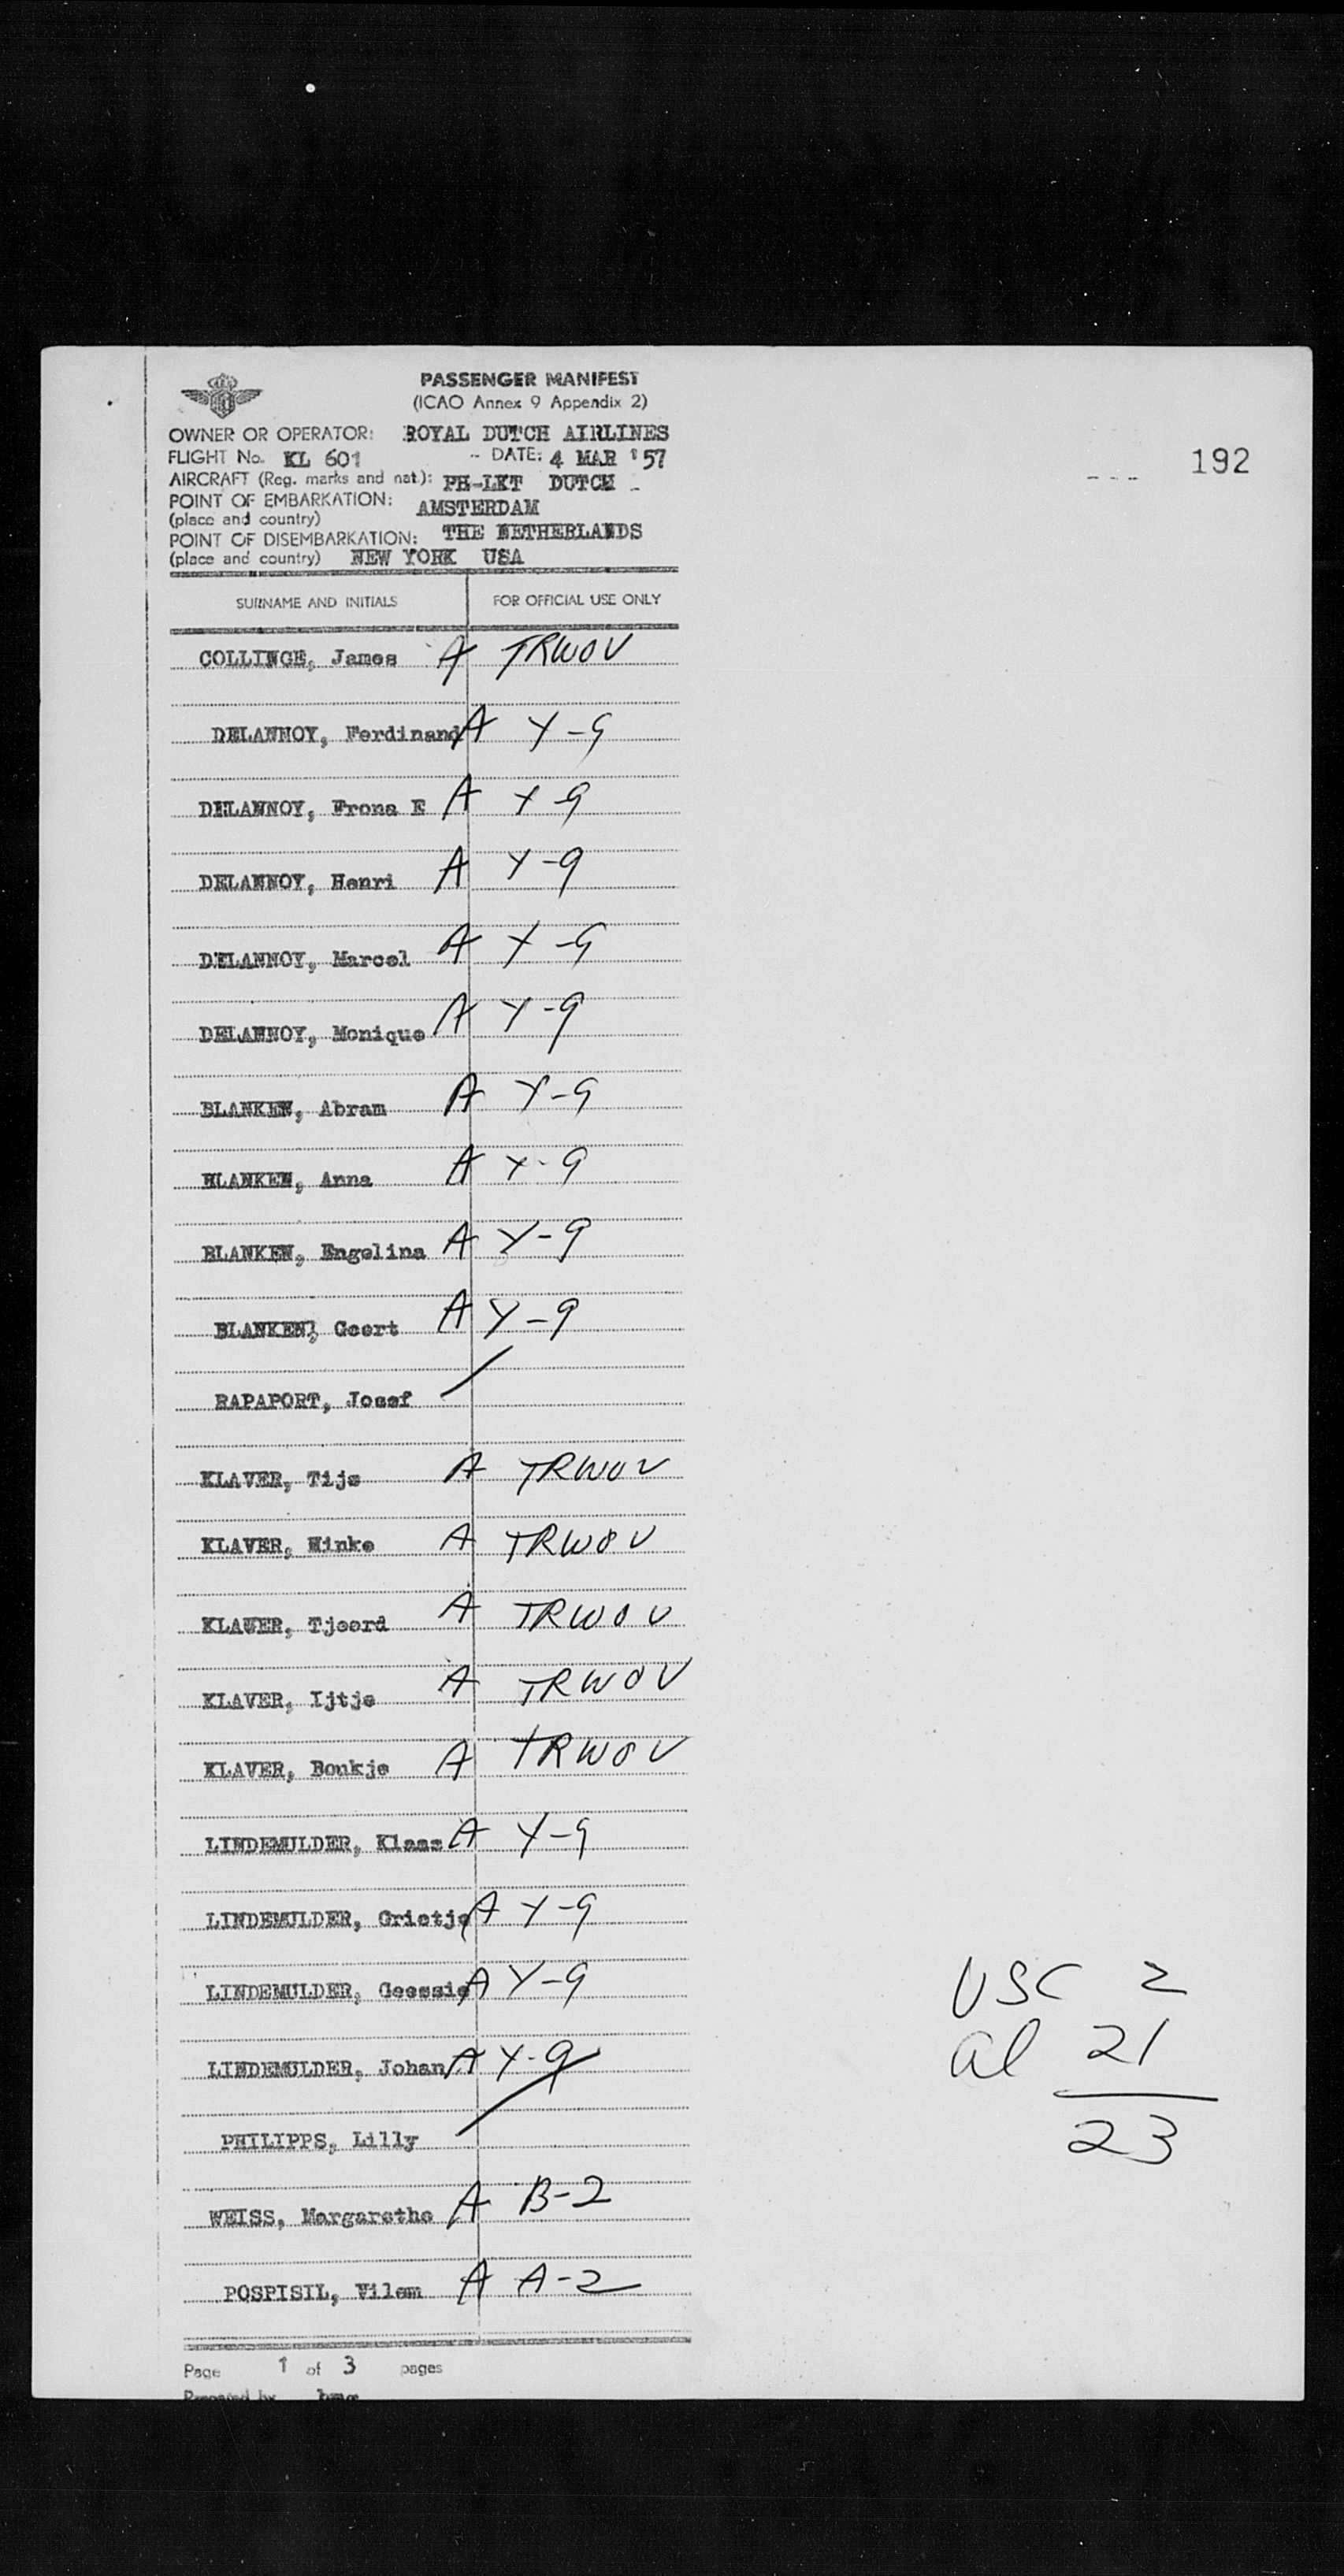 PASSENGER MANIFEST
(ICAO Annex 9 Appendix 2)
OWNER OR OPERATOR: ROYAL DUTCH AIRLINES
FLIGHT No. KL 601 - DATE: 4 MAR '57
192
AIRCRAFT (Reg. marks and nat.): PH-LKT DUTCH
POINT OF EMBARKATION: AMSTERDAM
(place and country) THE NETHERLANDS
POINT OF DISEMBARKATION:
(place and country) NEW YORK USA
SURNAME AND INITIALS FOR OFFICIAL USE ONLY
COLLINGE, James A TRWOV
DELANNOY, Ferdinand A Y-9
DELANNOY, Frona E A Y-9
DELANNOY, Henri A Y-9
DELANNOY, Marcel A Y-9
DELANNOY, Monique A Y-9
BLANKEN, Abram A Y-9
BLANKEN, Anna A Y-9
BLANKEN, Engelina A Y-9
BLANKEN, Geert A Y-9
RAPAPORT, Josef
KLAVER, Tijs A TRWOV
KLAVER, Hinke A TRWOV
KLAVER, Tjeerd A TRWOV
KLAVER, Ijtje A TRWOV
KLAVER, Boukje A TRWOV
LINDEMULDER, Klaas A Y-9
LINDEMULDER, Grietje A Y-9
LINDEMULDER, Geessie A Y-9
LINDEMULDER, Johan A Y-9
PHILIPPS, Lilly
WEISS, Margarethe A B-2
POSPISIL, Vilem A A-2
USC 2
al 21
23
Page 1 of 3 pages
Prepared by